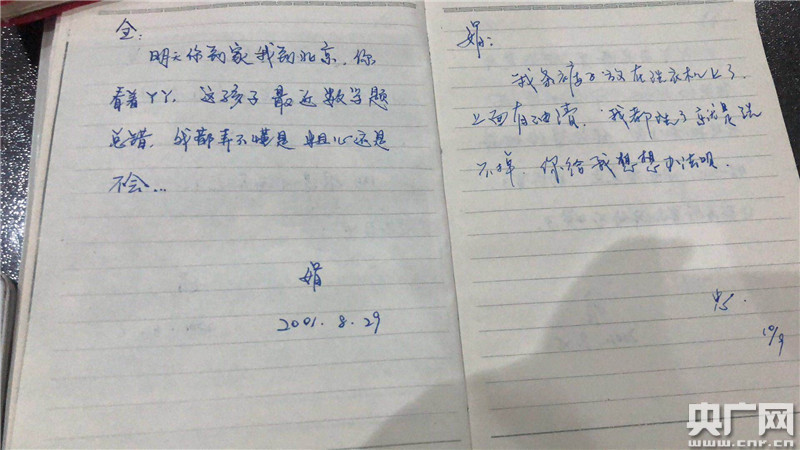 全:
明天你到家我到北京. 你
看着丫丫. 这孩子最近数学题
总错. 我都弄不懂是粗心还是
不会...
娟
2001. 8. 29
娟:
我条裤子放在洗衣机上了
上面有油渍. 我都洗了
不掉. 你给我想想办法呗.
10/9
央广网
www.cnr.cn